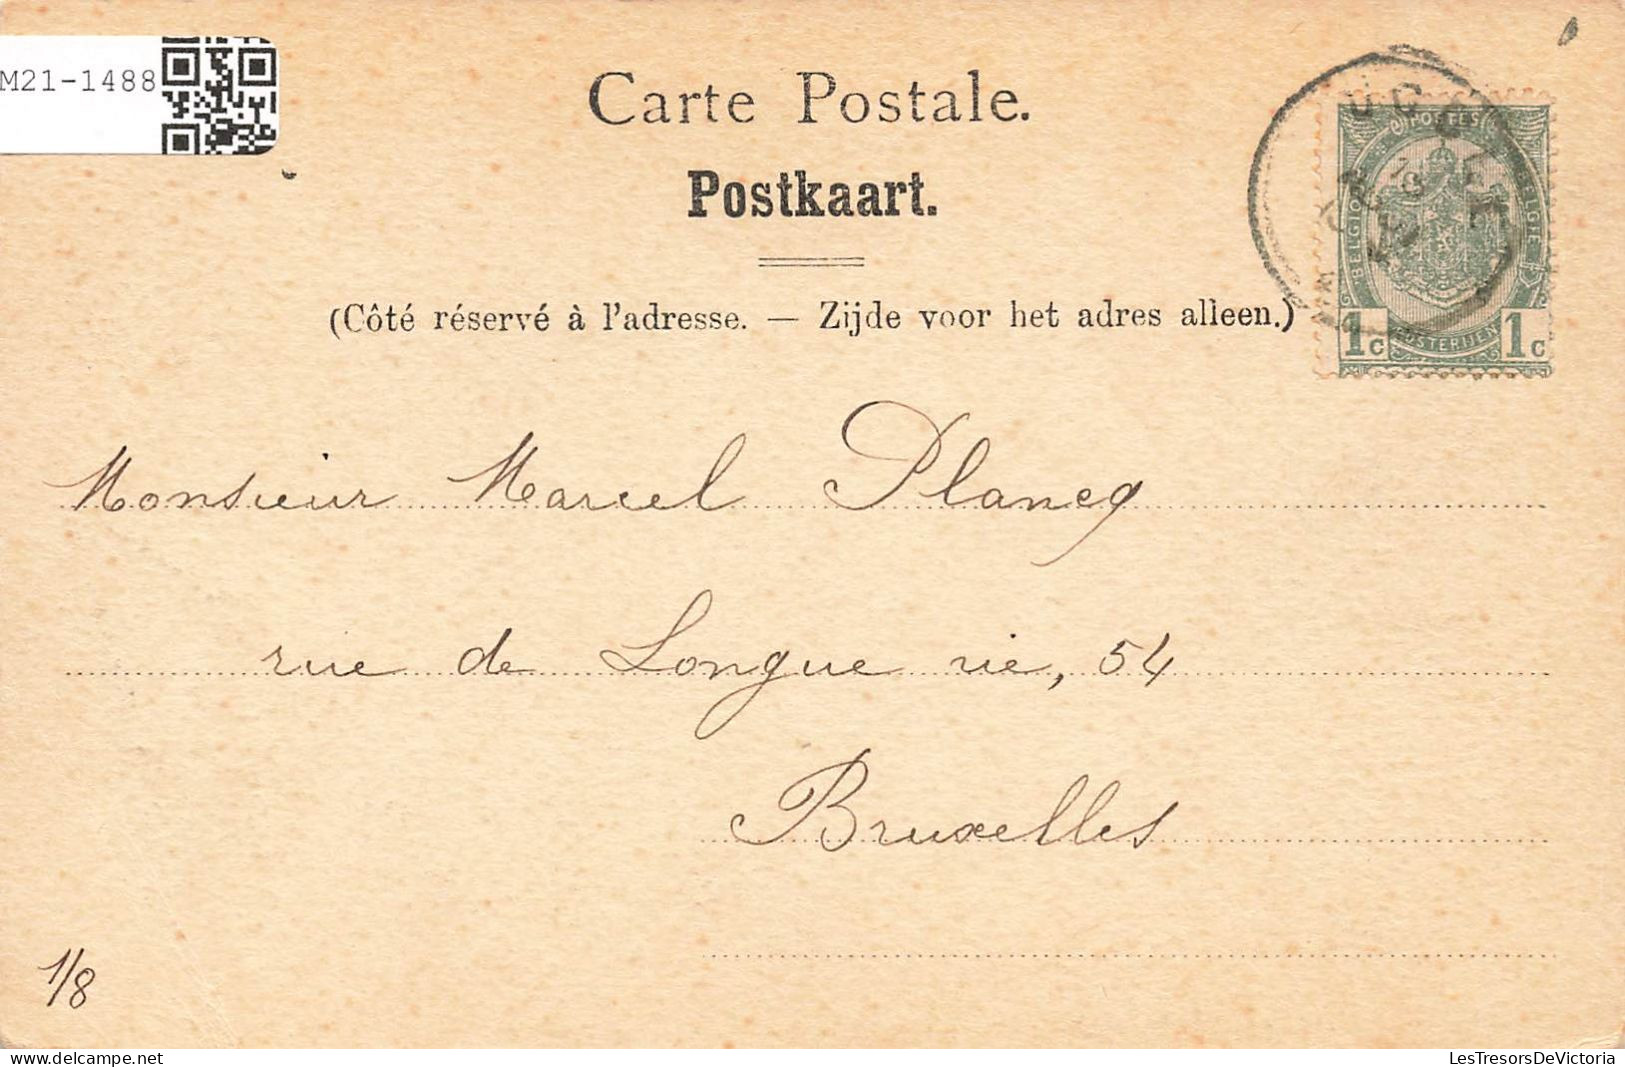 M21-1488
Carte Postale.
Postkaart.
(Côté réservé à l'adresse. — Zijde voor het adres alleen.)
UCCLE
POSTES
BELGIQUE BELGIE
POSTERIJEN
1c 1c
Monsieur Marcel Plancq
rue de Longue vie, 54
Bruxelles
1/8
delcampe.net
LesTresorsDeVictoria